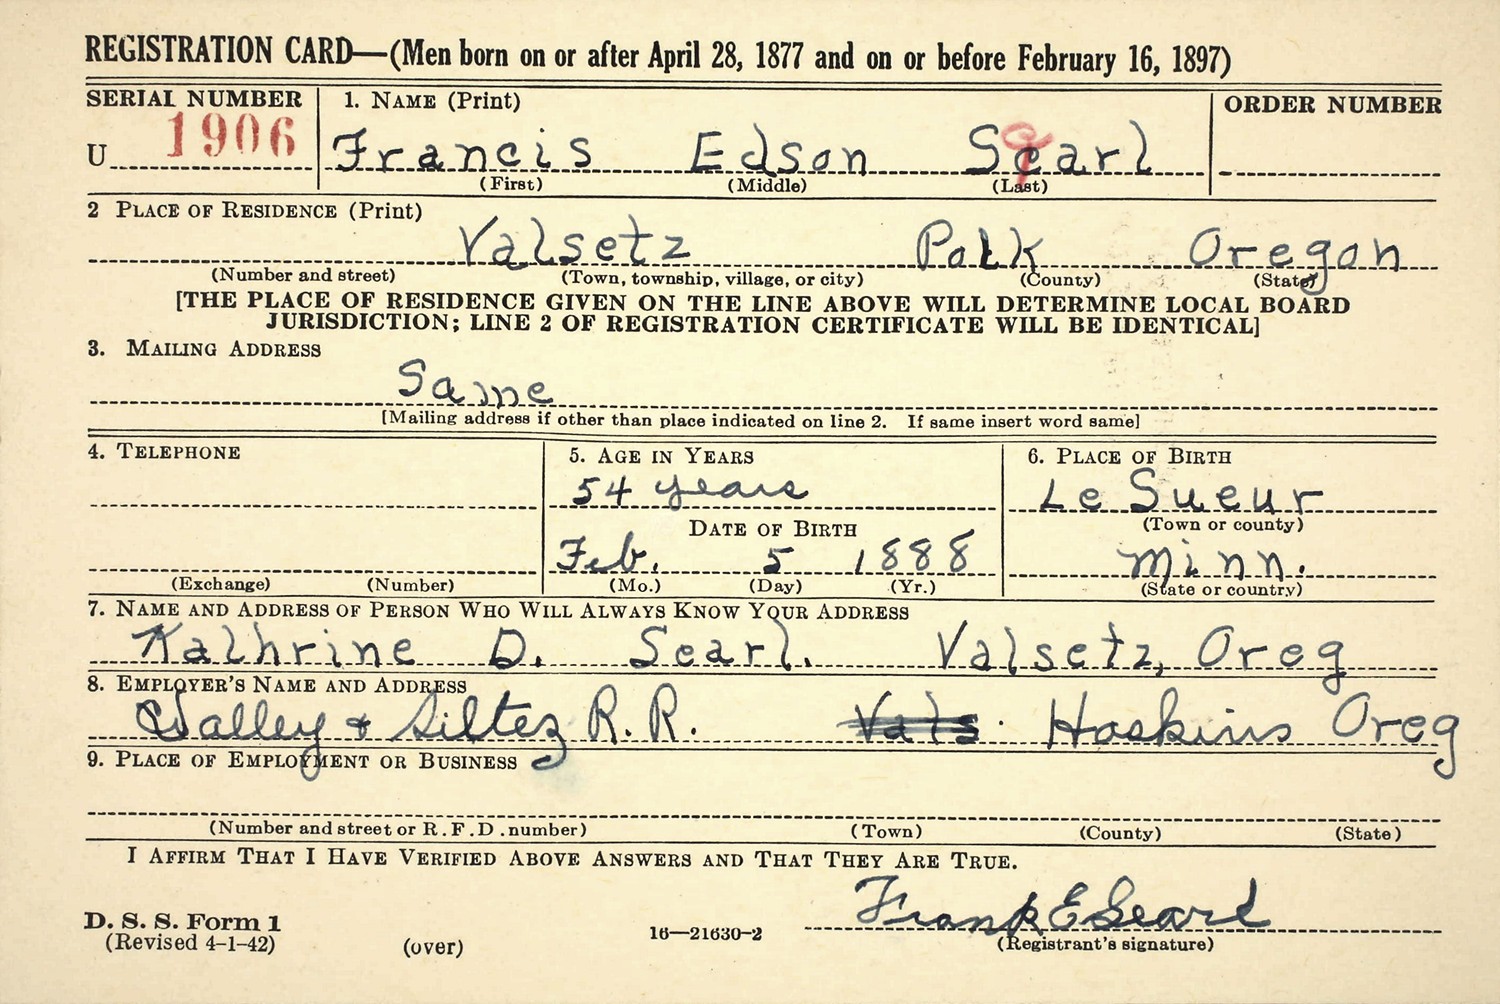 REGISTRATION CARD—(Men born on or after April 28, 1877 and on or before February 16, 1897)
SERIAL NUMBER 1. NAME (Print) ORDER NUMBER
U 1906 Francis Edson Searl
(First) (Middle) (Last)
2 PLACE OF RESIDENCE (Print)
Valsetz Polk Oregon
(Number and street) (Town, township, village, or city) (County) (State)
[THE PLACE OF RESIDENCE GIVEN ON THE LINE ABOVE WILL DETERMINE LOCAL BOARD
JURISDICTION; LINE 2 OF REGISTRATION CERTIFICATE WILL BE IDENTICAL]
3. MAILING ADDRESS
Same
[Mailing address if other than place indicated on line 2. If same insert word same]
4. TELEPHONE 5. AGE IN YEARS 6. PLACE OF BIRTH
54 years Le Sueur
(Town or county)
DATE OF BIRTH
Feb. 5 1888 Minn.
(Exchange) (Number) (Mo.) (Day) (Yr.) (State or country)
7. NAME AND ADDRESS OF PERSON WHO WILL ALWAYS KNOW YOUR ADDRESS
Kathrine D. Searl. Valsetz, Oreg
8. EMPLOYER'S NAME AND ADDRESS
Valley & Siltez R.R. Vals Hoskins Oreg
9. PLACE OF EMPLOYMENT OR BUSINESS
(Number and street or R.F.D. number) (Town) (County) (State)
I AFFIRM THAT I HAVE VERIFIED ABOVE ANSWERS AND THAT THEY ARE TRUE.
Frank E Searl
D. S. S. Form 1
(Revised 4-1-42) (over) 16—21630-2 (Registrant's signature)